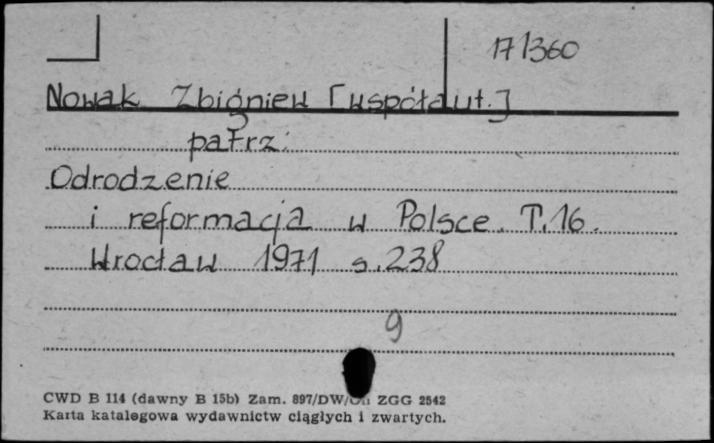 17/360
Nowak Zbigniew [współaut.]
patrz:
Odrodzenie
i reformacja w Polsce. T. 16.
Wrocław 1971 s. 238
9
CWD B 114 (dawny B 15b) Zam. 897/DW/ ZGG 2542
Karta katalogowa wydawnictw ciągłych i zwartych.